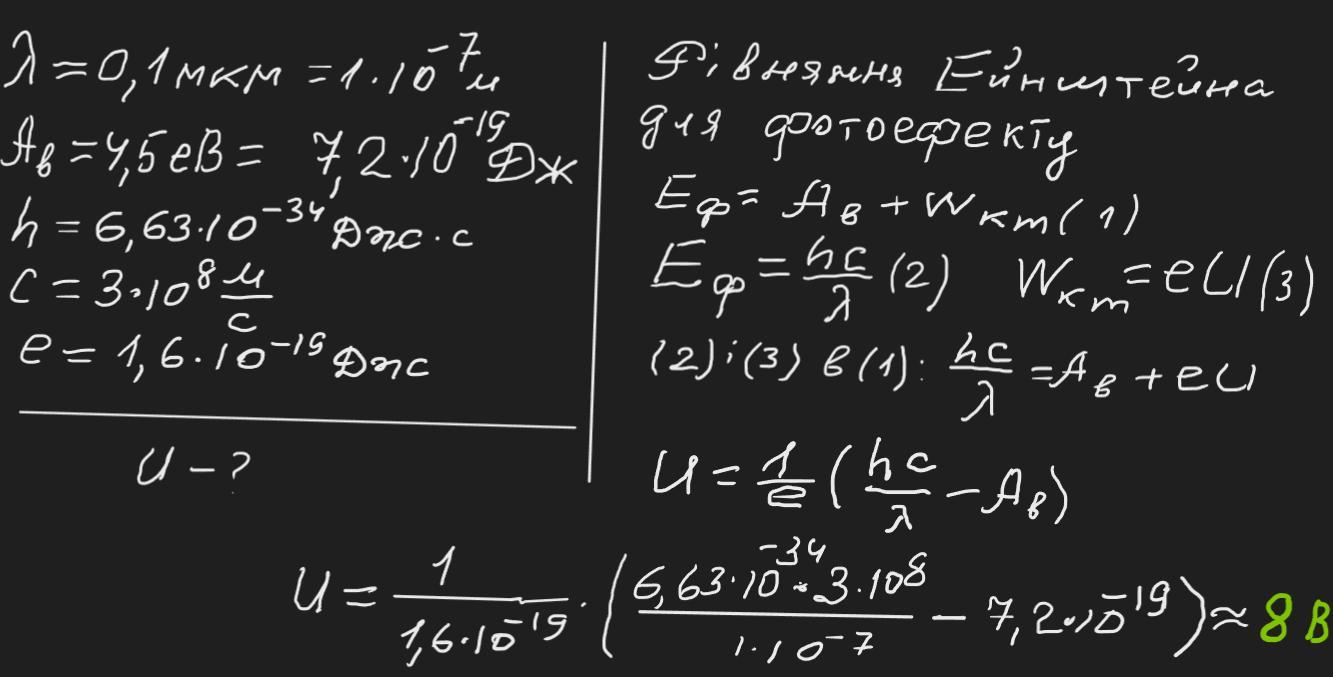 λ = 0,1 мкм = 1·10⁻⁷ м
Aв = 4,5 еВ = 7,2·10⁻¹⁹ Дж
h = 6,63·10⁻³⁴ Дж·с
c = 3·10⁸ м/с
e = 1,6·10⁻¹⁹ Дж
U – ?
Рівняння Ейнштейна
для фотоефекту
Eф = Aв + Wкт (1)
Eф = hc/λ (2) Wкт = eU (3)
(2) і (3) в (1): hc/λ = Aв + eU
U = 1/e (hc/λ – Aв)
U = 1/(1,6·10⁻¹⁹) · (6,63·10⁻³⁴·3·10⁸/(1·10⁻⁷) – 7,2·10⁻¹⁹) ≈ 8 В